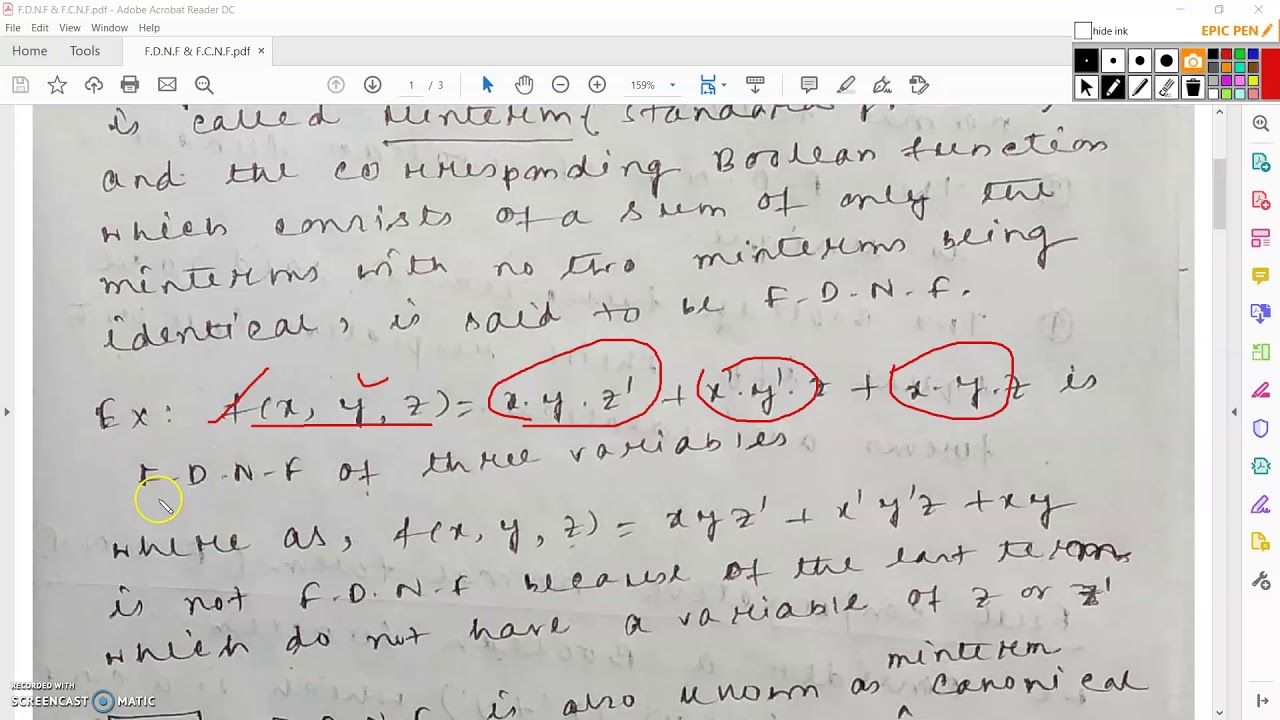 F.D.N.F & F.C.N.F.pdf - Adobe Acrobat Reader DC
File Edit View Window Help
hide ink EPIC PEN
Home Tools F.D.N.F & F.C.N.F.pdf ×
1 / 3 159%
is called Minterm ( standard
and the corresponding Boolean function
which consists of a sum of only the
minterms with no two minterms being
identical, is said to be F.D.N.F.
Ex: f(x, y, z) = x.y.z' + x'.y'.z + x.y.z is
F.D.N.F of three variables
where as, f(x, y, z) = xyz' + x'y'z + xy
is not F.D.N.F because of the last term
which do not have a variable of z or z'
minterm
is also known as canonical
RECORDED WITH
SCREENCAST MATIC